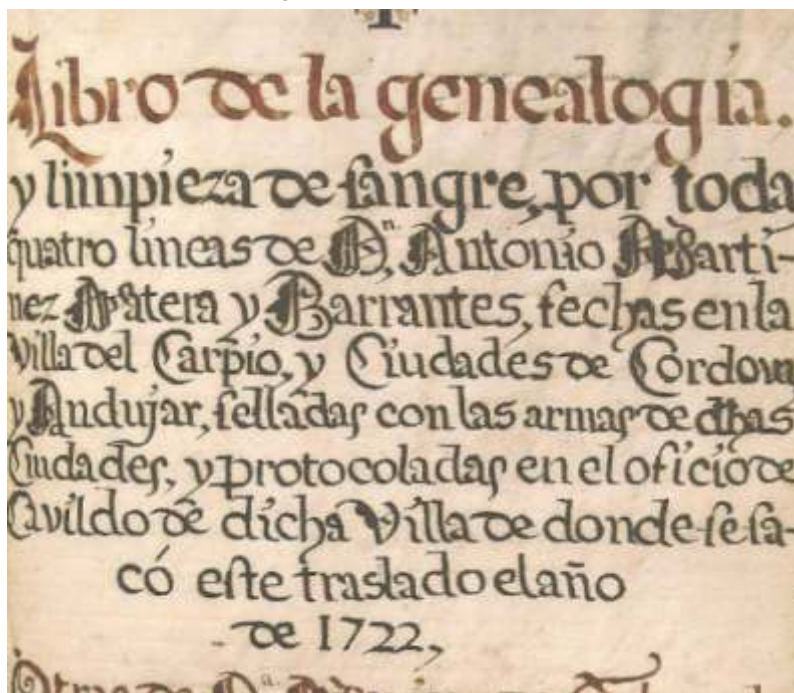 Libro de la genealogia.
y limpieza de sangre, por toda
quatro lineas de Dn. Antonio Marti-
nez Matera y Barrantes, fechas en la
Villa del Carpio, y Ciudades de Cordova
y Andujar, selladas con las armas de dhas
Ciudades, y protocoladas en el oficio de
Cavildo de dicha Villa de donde se sa-
có este traslado el año
de 1722,